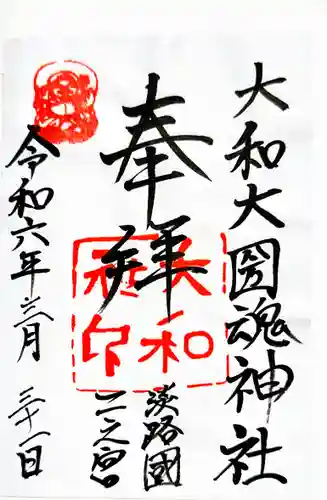 大和大圀魂神社
奉拝
淡路國
二之宮
令和六年三月三十一日
大和
社印